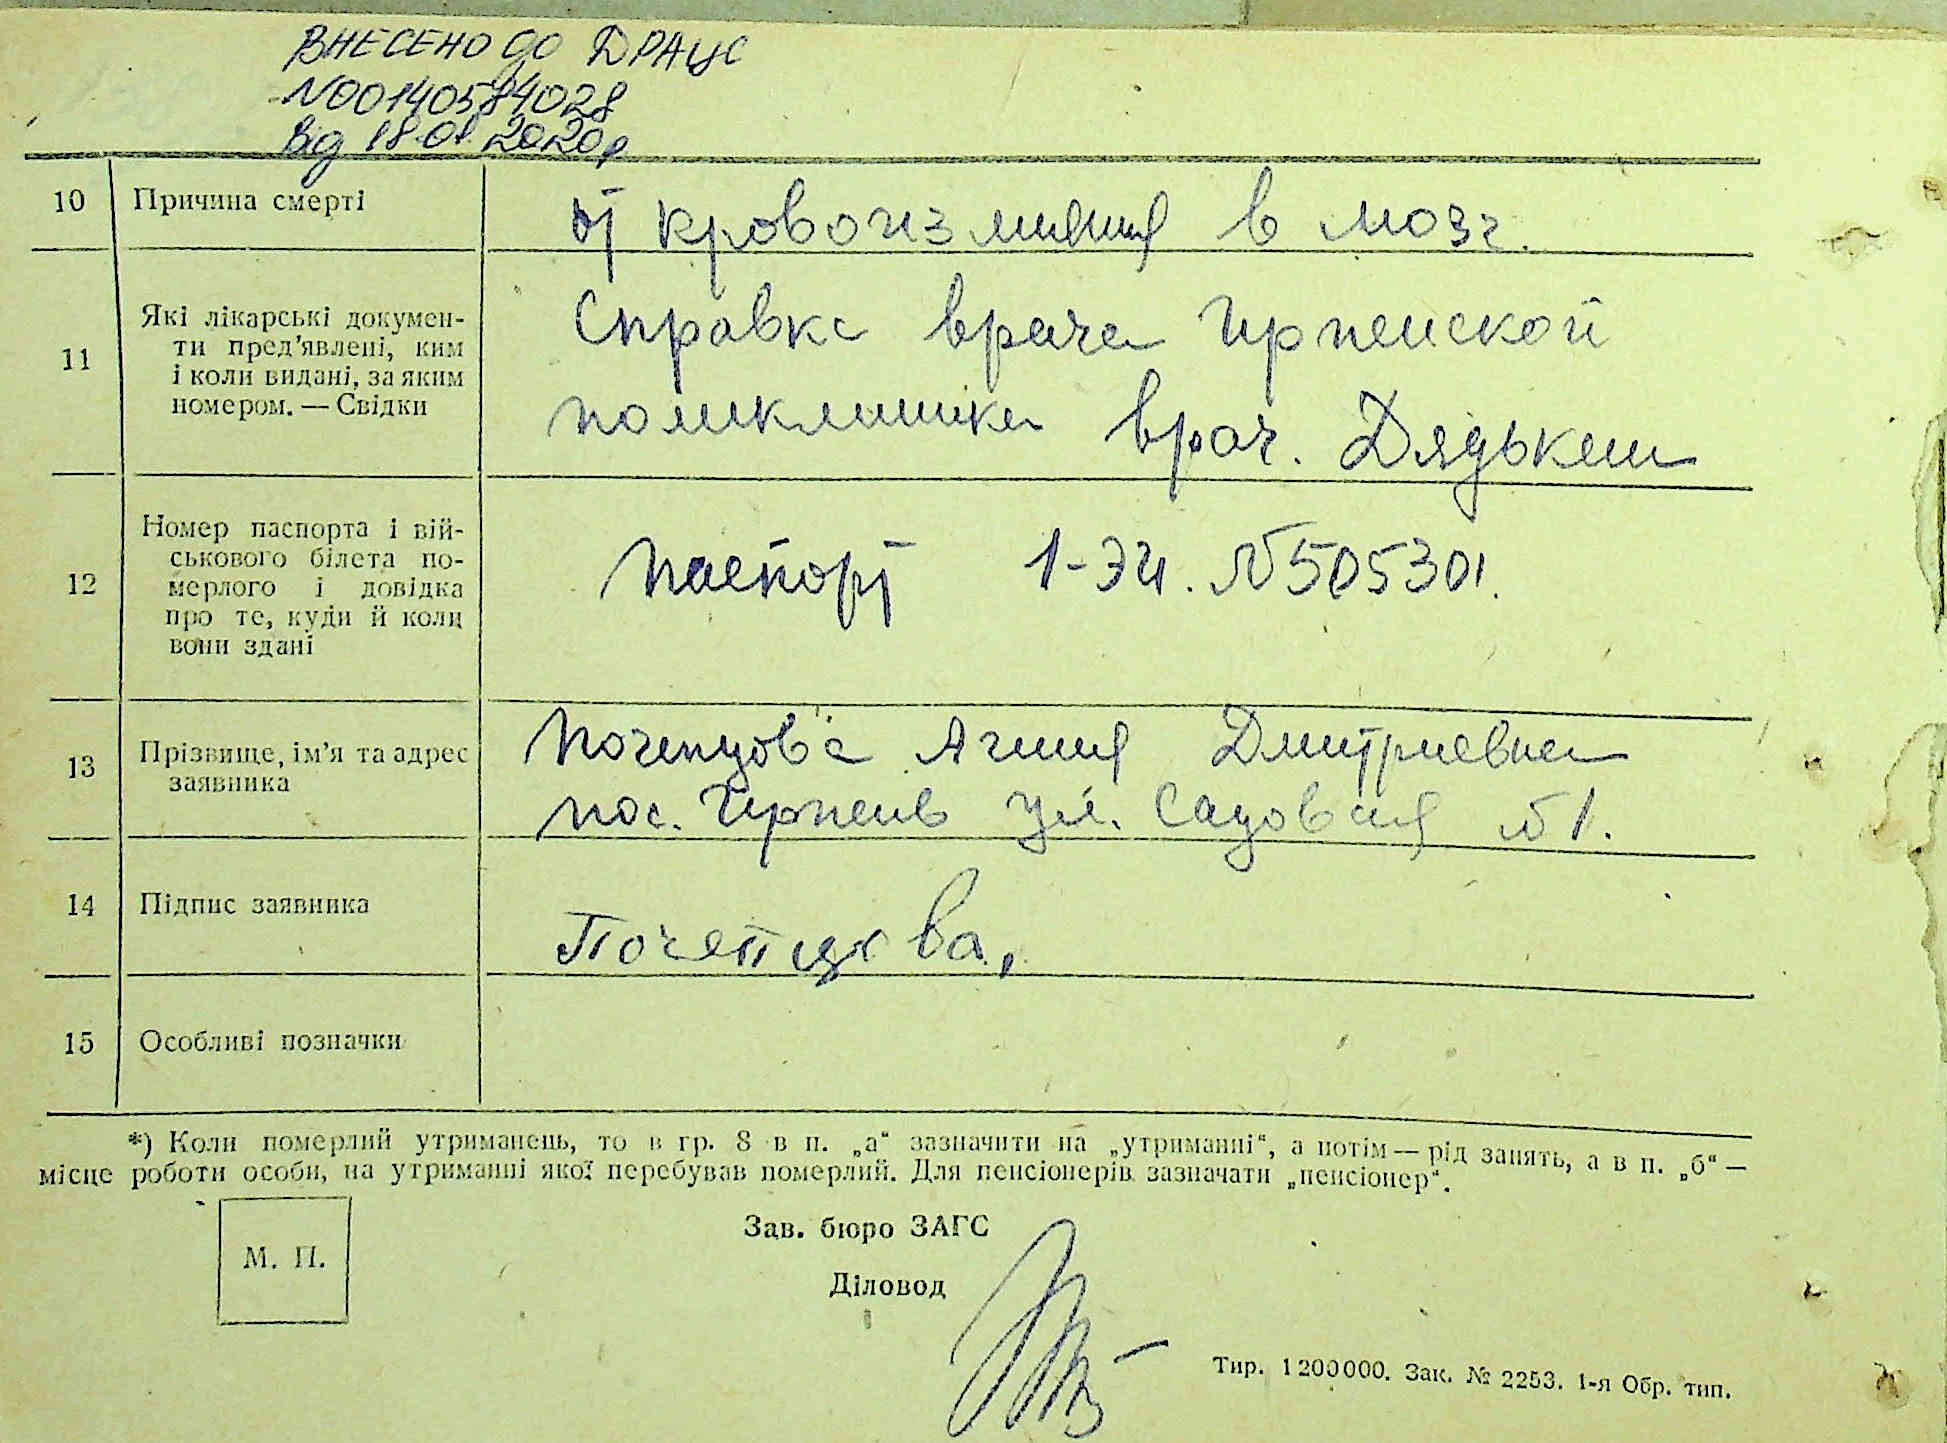 ВНЕСЕНО до ДРАЦС
№00140584028
від 18.01.2020р
10 Причина смерті
от кровоизлияния в мозг.
11 Які лікарські докумен-
ти пред'явлені, ким
і коли видані, за яким
номером. — Свідки
Справка врача Ирпенской
поликлиники врач. Дядькен
12 Номер паспорта і вій-
ськового білета по-
мерлого і довідка
про те, куди й коли
вони здані
Паспорт 1-ЭЧ. №505301.
13 Прізвище, ім'я та адрес
заявника
Почепцова Дмитриевна
пос. Ирпень ул. Садовая №1.
14 Підпис заявника
Почепцова,
15 Особливі позначки
*) Коли померлий утриманець, то в гр. 8 в п. „а“ зазначити на „утриманні“, а потім — рід занять, а в п. „б“ —
місце роботи особи, на утриманні якої перебував померлий. Для пенсіонерів зазначати „пенсіонер“.
Зав. бюро ЗАГС
М. П.
Діловод
Тир. 1200000. Зак. № 2253. 1-я Обр. тип.